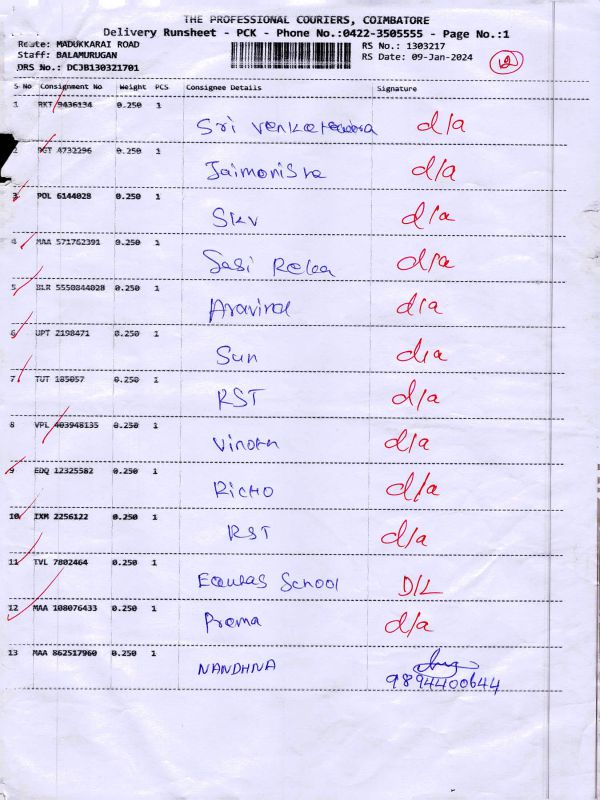 THE PROFESSIONAL COURIERS, COIMBATORE
Delivery Runsheet - PCK - Phone No.:0422-3505555 - Page No.:1
Route: MADUKKARAI ROAD
Staff: BALAMURUGAN
DRS No.: DCJB130321701
RS No.: 1303217
RS Date: 09-Jan-2024
12
S No Consignment No Weight PCS Consignee Details Signature
1 RKT 9436134 0.250 1 Sri d/a
2 4732296 0.250 1 Jaimonisha d/a
3 POL 6144028 0.250 1 SKV d/a
4 MAA 571762391 0.250 1 Sasi Reka d/a
5 BLR 5550844028 0.250 1 Aravind d/a
6 UPT 2198471 0.250 1 Sun d/a
7 TUT 185057 0.250 1 RST d/a
8 VPL 403948135 0.250 1 Vinoth d/a
9 EDQ 12325582 0.250 1 Richo d/a
10 IXM 2256122 0.250 1 RST d/a
11 TVL 7802464 0.250 1 School D/L
12 MAA 108076433 0.250 1 Prema d/a
13 MAA 862517960 0.250 1 NANDHNA
9894400644